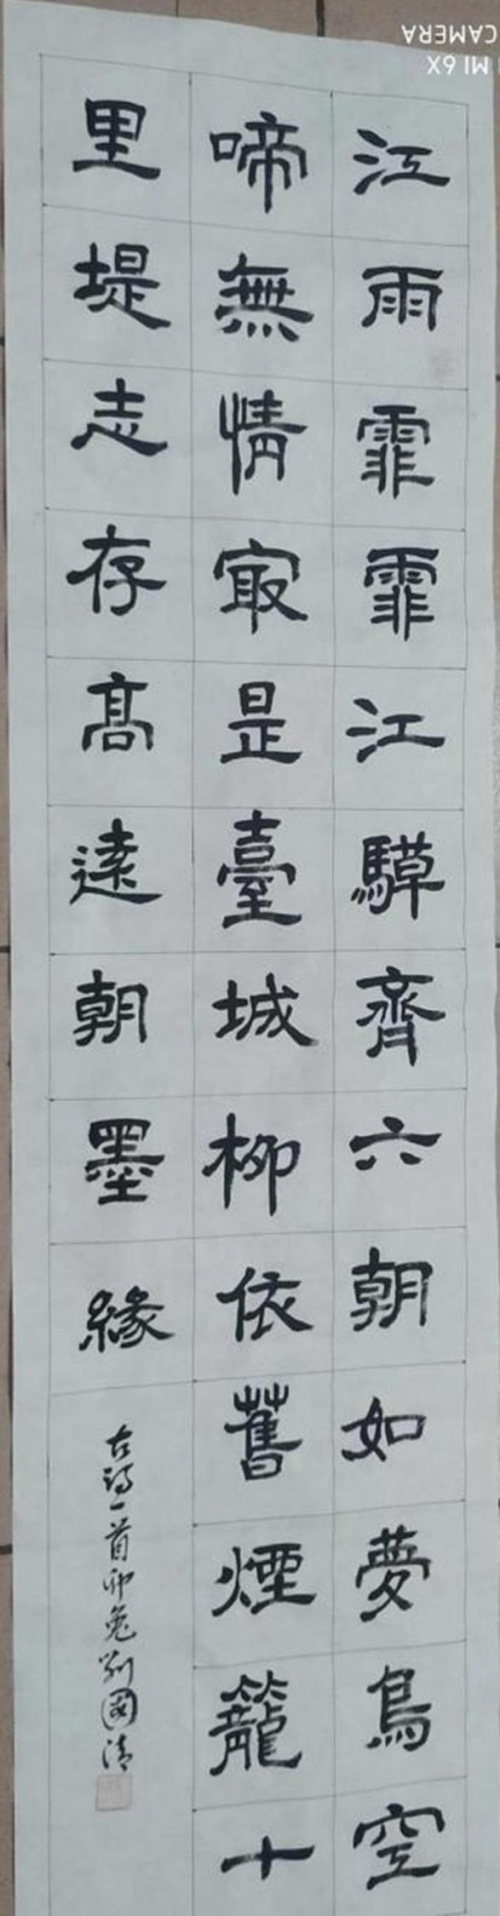 江雨霏霏江騲齊六朝如夢鳥空
啼無情㝡是臺城柳依舊煙籠十
里堤志存髙遠朝墨緣
古诗一首卯兔刘國清
MI 6X
CAMERA